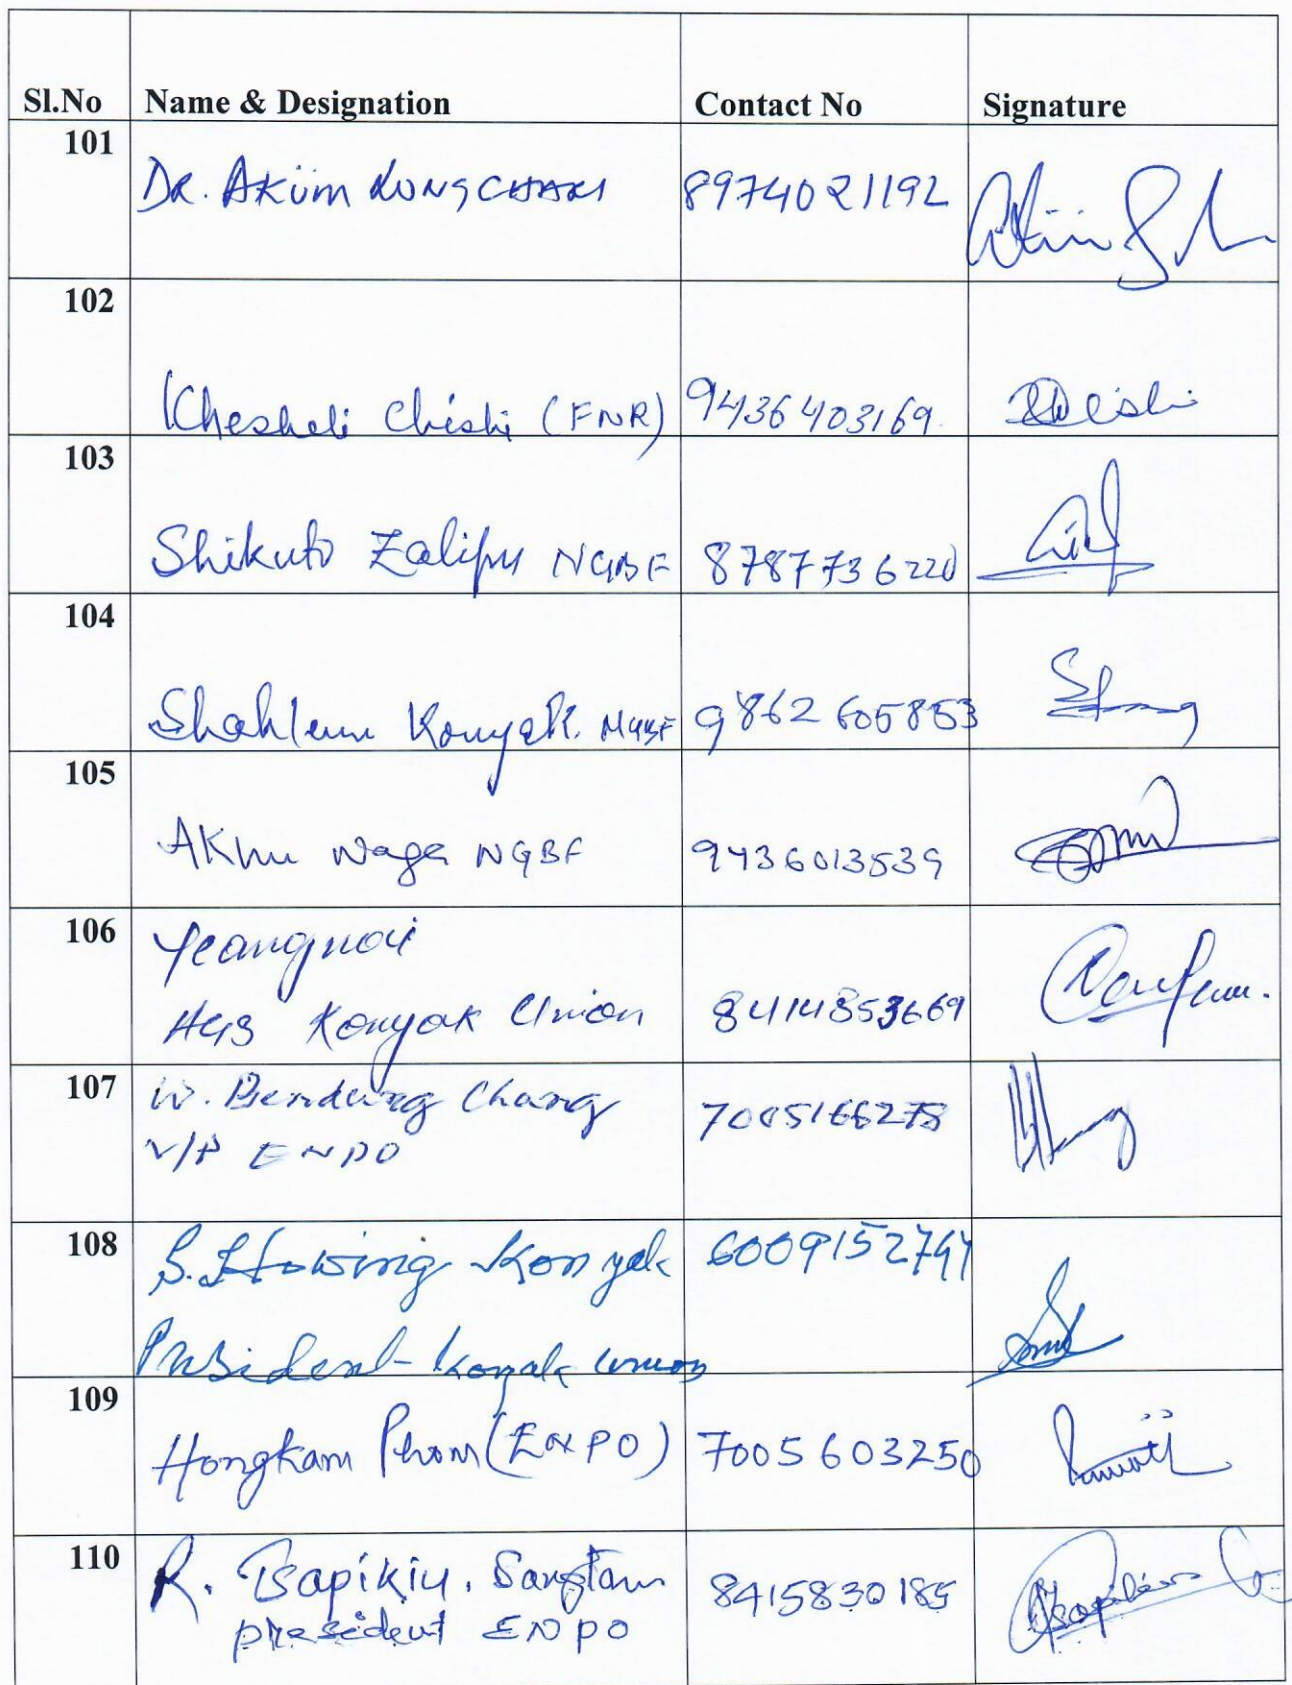 Sl.No Name & Designation Contact No Signature
101
DR. AKÜM LONGCHARI 8974021192
102
Khesheli Chishi (FNR) 9436403169.
103
Shikuto Zalipu NGBF 8787736220
104
Shahlem Konyak. NGBF 9862605853
105
Akhu Naga NGBF 9436013539
106
Yeangnoi
AGS Konyak Union 8414853669
107
W. Bendang Chang 7005166275
V/P ENPO
108
S. Howing Konyak 6009152747
President Konyak Union
109
Hongkam Phom (ENPO) 7005603250
110
R. Tsapikiu. Sangtam 8415830185
president ENPO